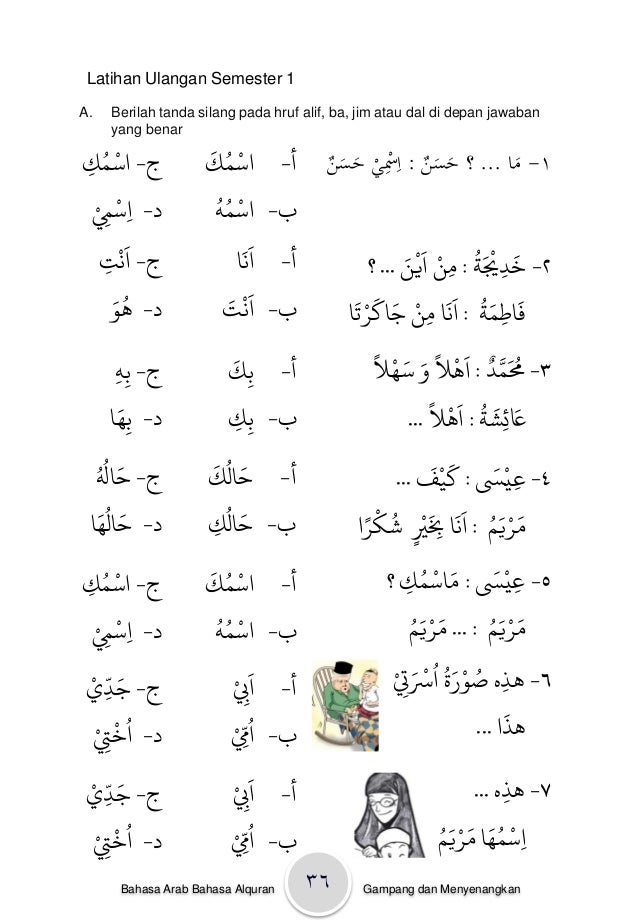 Latihan Ulangan Semester 1
A. Berilah tanda silang pada hruf alif, ba, jim atau dal di depan jawaban
yang benar
١- مَا ... ؟ حَسَنٌ : اِسْمِيْ حَسَنٌ أ- اسْمُكَ ج- اسْمُكِ
ب- اسْمُهُ د- اِسْمِيْ
٢- خَدِيْجَةُ : مِنْ اَيْنَ ... ؟ أ- اَنَا ج- اَنْتِ
فَاطِمَةُ : اَنَا مِنْ جَاكَرْتَا ب- اَنْتَ د- هُوَ
٣- مُحَمَّدٌ : اَهْلاً وَ سَهْلاً أ- بِكَ ج- بِهِ
عَائِشَةُ : اَهْلاً ... ب- بِكِ د- بِهَا
٤- عِيْسَى : كَيْفَ ... أ- حَالُكَ ج- حَالُهُ
مَرْيَمُ : اَنَا بِخَيْرٍ شُكْرًا ب- حَالُكِ د- حَالُهَا
٥- عِيْسَى : مَاسْمُكِ ؟ أ- اسْمُكَ ج- اسْمُكِ
مَرْيَمُ : ... مَرْيَمُ ب- اسْمُهُ د- اِسْمِيْ
٦- هذِه صُوْرَةُ اُسْرَتِيْ أ- اَبِيْ ج- جَدِّيْ
هذَا ... ب- اُمِّيْ د- اُخْتِيْ
٧- هذِه ... أ- اَبِيْ ج- جَدِّيْ
اِسْمُهَا مَرْيَمُ ب- اُمِّيْ د- اُخْتِيْ
Bahasa Arab Bahasa Alquran ٣٦ Gampang dan Menyenangkan